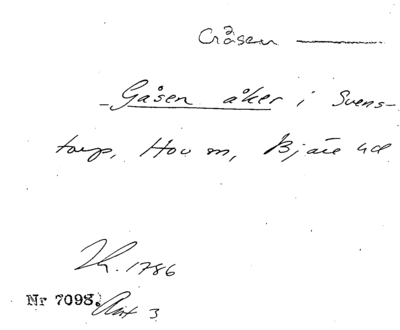 Gåsen ———
– Gåsen åker i Svens-
torp, Hov sn, Bjäre hd
1786
Nr 7098. Akt 3